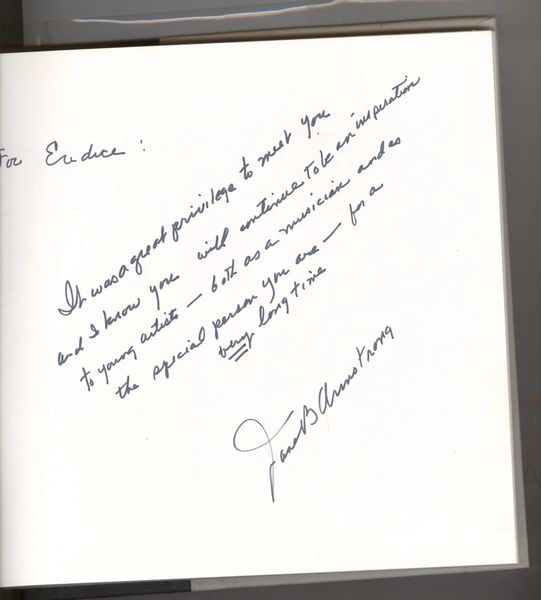 For Eudice:
It was a great privilege to meet you
and I know you will continue to be an insperation
to young artists — both as a musician and as
the special person you are — for a
very long time
Jane B Armstrong